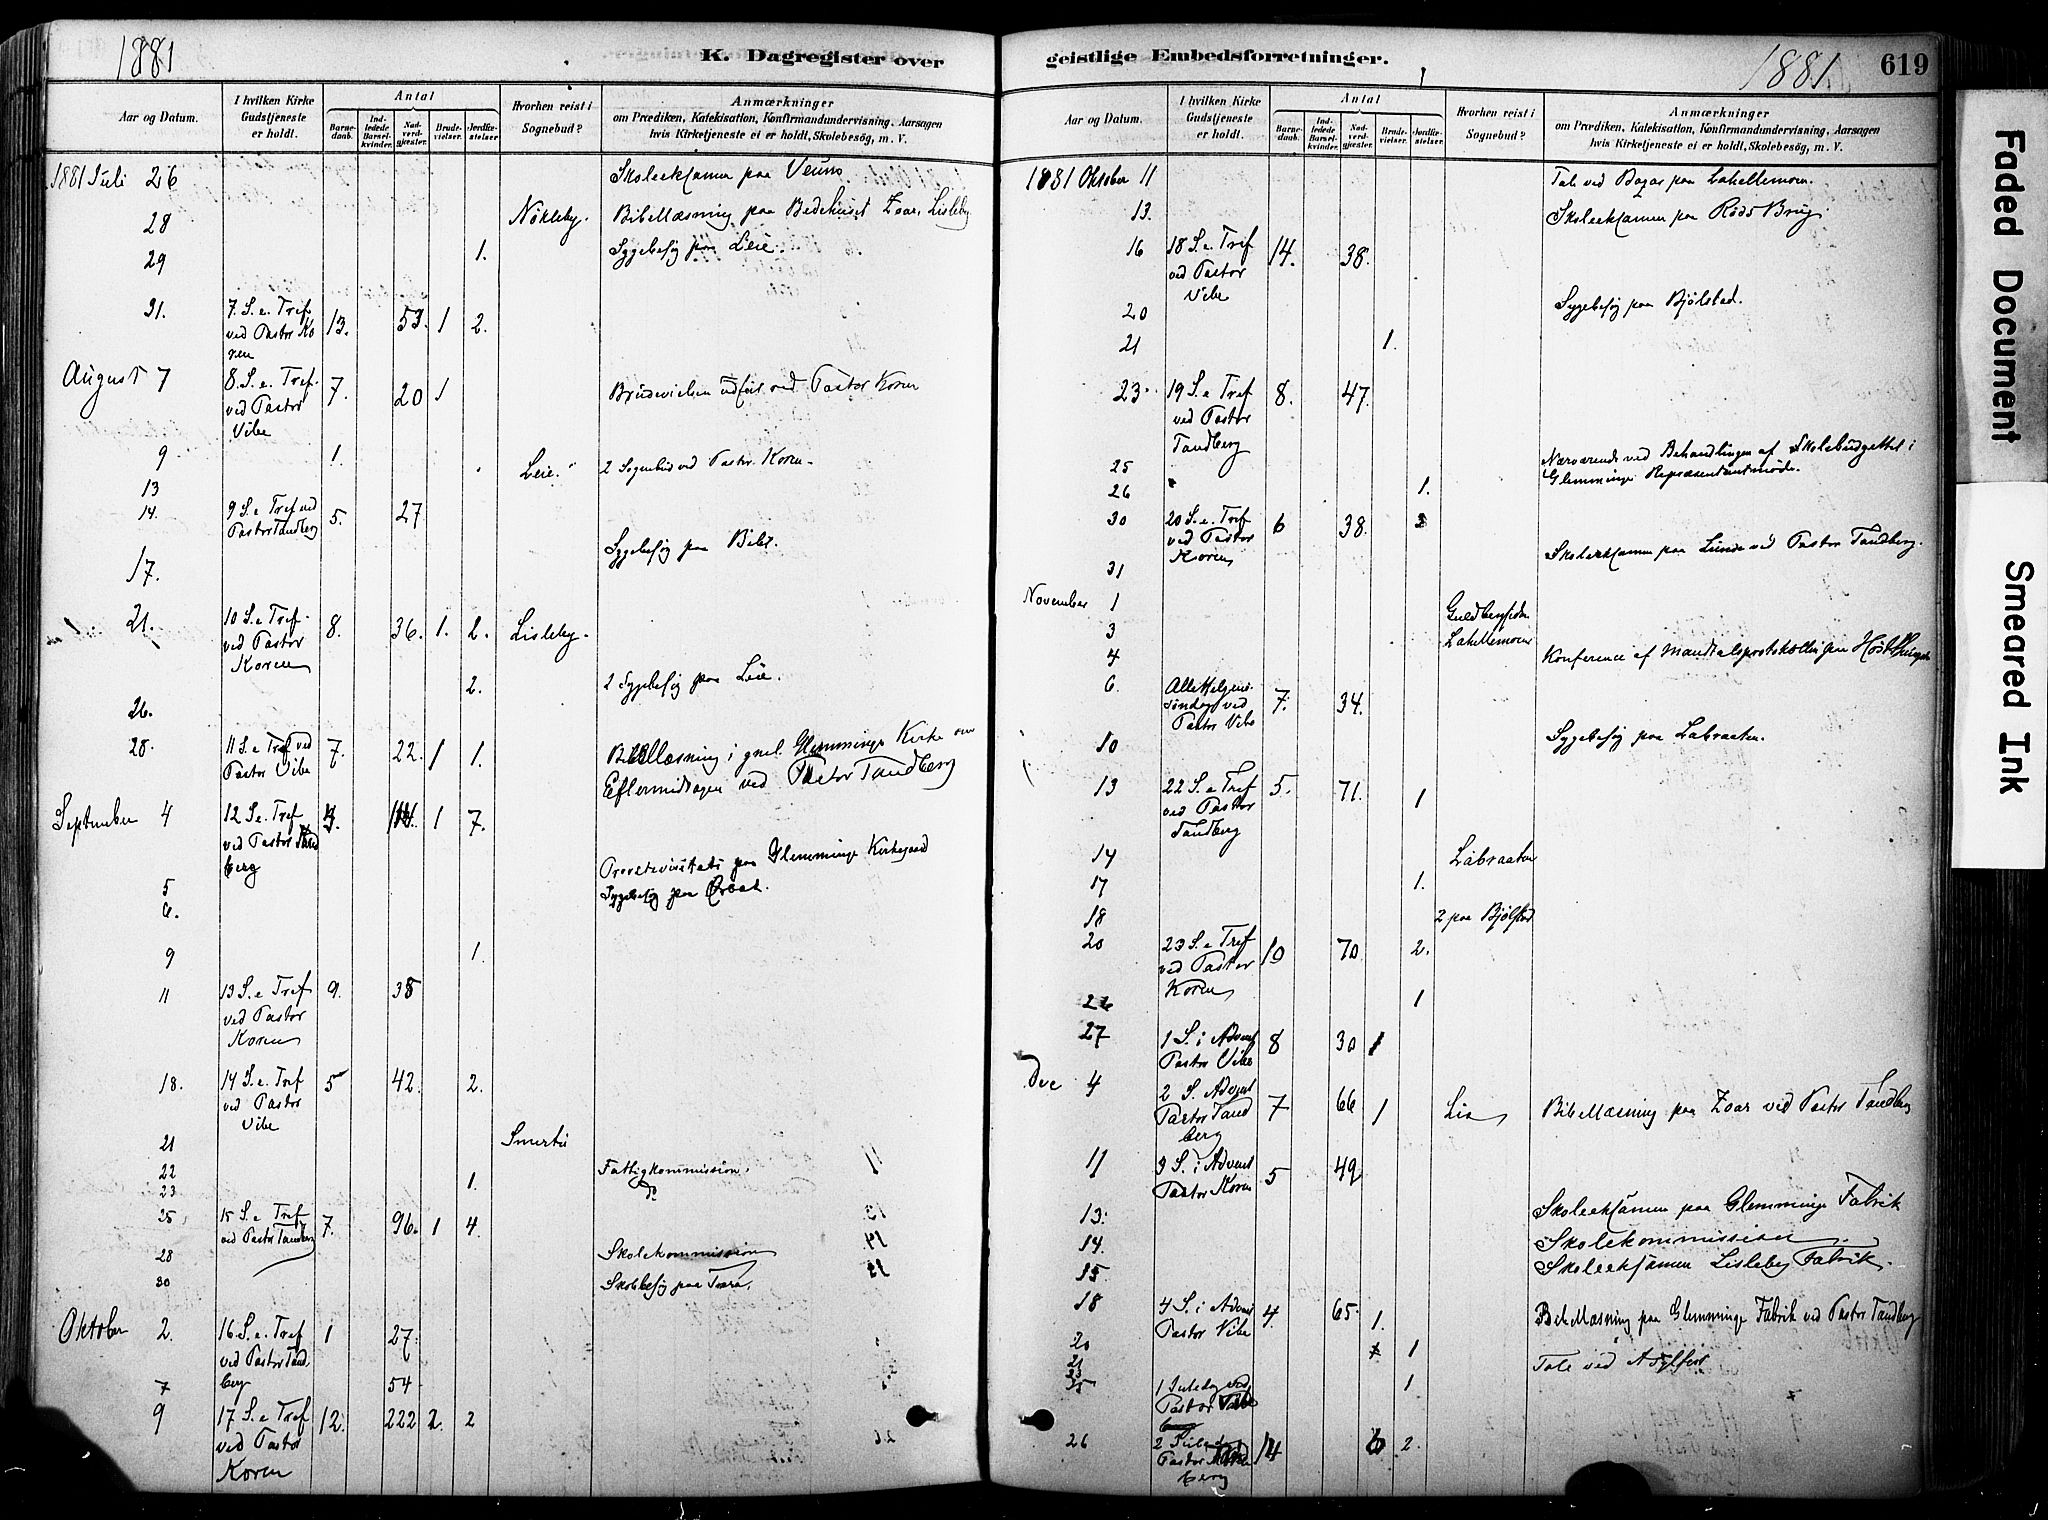 1881
K. Dagregister over
Aar og Datum.
I hvilken Kirke Gudstjeneste er holdt.
Antal
Barnedaab.
Indledede Barselkvinder.
Nadverdgjæster.
Brudevielser.
Jordfæstelser
Hvorhen reist i Sognebud?
Anmærkninger
om Prædiken, Katekisation, Konfirmandundervisning, Aarsagen
hvis Kirketjeneste ei er holdt, Skolebesøg, m. V.
1881 Juli 26 Skoleeksamen paa Veum
28 Nökleby. Bibellæsning paa Bedehuset Zoar, Lisleby
29 1. Sygebesög paa Leie.
31. 7. S. e. Tref ved Pastor Koren 13. 53. 1 2.
August 7 8. S. e. Tref. ved Pastor Vibe 7. 20 1 Brudevielsen udført ved Pastor Koren
9 1. Leie. 2 Sognebud ved Pastor Koren.
13
14. 9 S. e. Tref ved Pastor Tandberg 5. 27
17. Sygebesög paa
21. 10 S. e. Tref. ved Pastor Koren 8. 36. 1. 2. Lisleby.
26. 2. 2 Sygebesög paa Leie.
28. 11 S. e Tref ved Pastor Vibe 7. 22. 1 1. Bibellæsning i gml. Glemminge Kirke om
Eftermidagen ved Pastor Tandberg
September 4 12 S. e. Tref ved Pastor Tandberg 1 7.
5 Provstevisitats paa Glemminge Kirkegaard
6. Sygebesög paa
9 1.
11 13 S. e Tref ved Pastor Koren 9. 38
18. 14 S. e. Tref ved Pastor Vibe 5 42. 2.
21 Smertu
22 Fattigkommission.
23 1. do
25 15 S. e Tref ved Pastor Tandberg 7. 96. 1 4.
28 Skolekommission
30 Skolebesög paa Trara.
Oktober 2. 16. S. e. Tref ved Pastor Tandberg 1 27.
7 54
9 17. S. e Tref ved Pastor Koren 12. 222 2. 2
geistlige Embedsforretninger.
1881
619
Aar og Datum.
I hvilken Kirke Gudstjeneste er holdt.
Antal
Barnedaab.
Indledede Barselkvinder.
Nadverdgjæster.
Brudevielser.
Jordfæstelser.
Hvorhen reist i Sognebud?
Anmærkninger
om Prædiken, Katekisation, Konfirmandundervisning, Aarsagen
hvis Kirketjeneste ei er holdt, Skolebesøg, m. V.
1881 Oktober 11 Tale ved Bazar paa Lahellemoen.
13. Skoleeksamen paa Röds Brug
16 18 S. e. Tref ved Pastor Vibe 14. 38.
20 Sygebesög paa Bjølstad.
21 1.
23. 19 S. e Tref ved Pastor Tandberg 8. 47.
25 Nærværende ved Behandlingen af Skolebudgettet i
Glemminge Repræsentantmøde.
26 1.
30 20 S. e. Tref ved Pastor Koren 6 38.
31 Skoleeksamen paa Lunde ved Pastor Tandberg.
November 1
3 Lahellemoen
4 Konference af Mandtalsprotokollen
6. Alle Helgens söndag ved Pastor Vibe 7. 34.
10 Sygebesög paa Labraaten.
13 22 S. e Tref ved Pastor Tandberg 5. 71. 1
14 Labraaten
17 1.
18 2 paa Bjølstad
20 23 S. e Tref ved Pastor Koren 10 70 2.
1
27 1 S. i Advent Pastor Vibe 8 30 1
Dec 4 2 S. Advent Pastor Tandberg 7 66 1 Bibellæsning paa Zoar ved Pastor Tandberg
11 3 S. i Advent Pastor Koren 5 49
13. Skoleeksamen paa Glemminge Fabrik
14. Skolekommission
15 Skoleeksamen Lisleby Fabrik.
18 4 S. i Advent Pastor Vibe 4. 65. 1. Bibellæsning paa Glemminge Fabrik ved Pastor Tandberg
20 1
21 Tale ved Asylfest
23
25 1 Juledag ved Pastor 1
26 2 Juledag Pastor Tandberg 14 2.
Faded Document
Smeared Ink